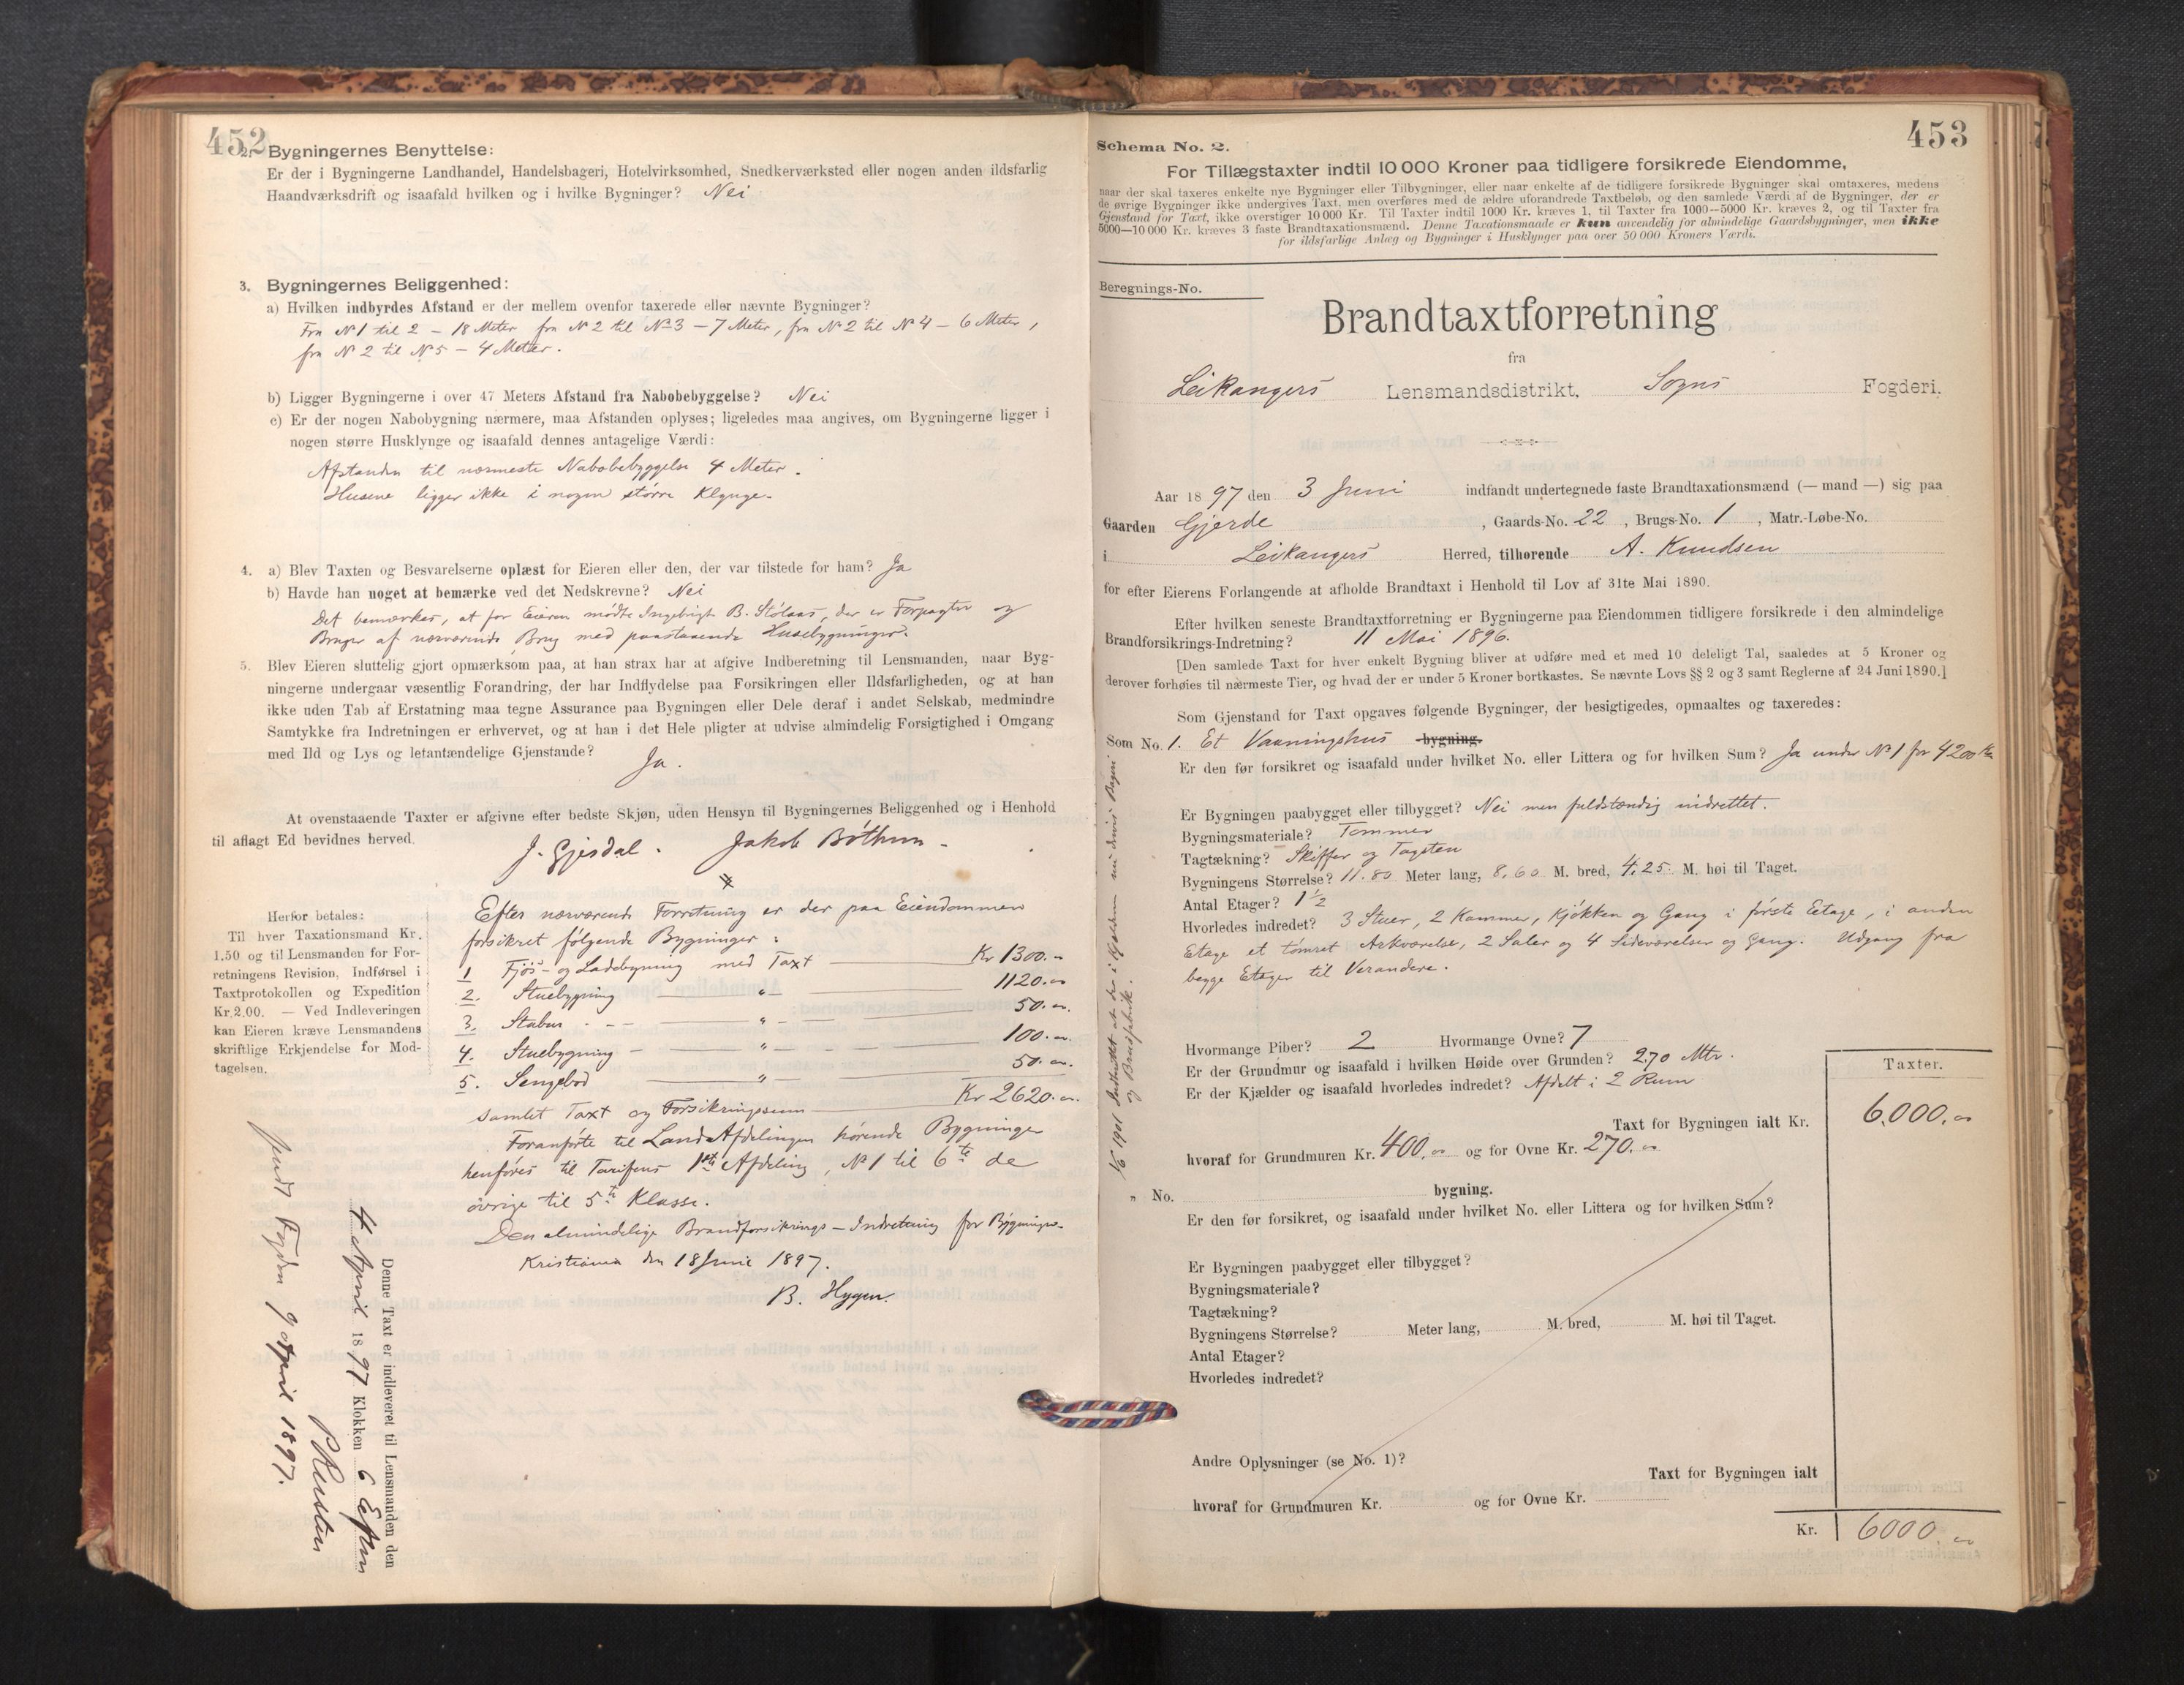 452
2. Bygningernes Benyttelse:
Er der i Bygningerne Landhandel, Handelsbageri, Hotelvirksomhed, Snedkerværksted eller nogen anden ildsfarlig
Haandværksdrift og isaafald hvilken og i hvilke Bygninger? Nei
3. Bygningernes Beliggenhed:
a) Hvilken indbyrdes Afstand er der mellem ovenfor taxerede eller nævnte Bygninger?
Fra No 1 til 2 – 18 Meter fra No 2 til No 3 – 7 Meter, fra No 2 til No 4 – 6 Meter,
fra No 2 til No 5 – 4 Meter.
b) Ligger Bygningerne i over 47 Meters Afstand fra Nabobebyggelse? Nei
c) Er der nogen Nabobygning nærmere, maa Afstanden oplyses; ligeledes maa angives, om Bygningerne ligger i
nogen større Husklynge og isaafald dennes antagelige Værdi:
Afstanden til nærmeste Nabobebyggelse 4 Meter.
Husene ligger ikke i nogen större Klynge.
4. a) Blev Taxten og Besvarelserne oplæst for Eieren eller den, der var tilstede for ham? Ja
b) Havde han noget at bemærke ved det Nedskrevne? Nei
Det bemærkes, at for Eieren mödte Ingebrigt B. Stölaas, der er Forpagter og
Bruger af nærværende Brug med paastaaende Husebygninger.
5. Blev Eieren sluttelig gjort opmærksom paa, at han strax har at afgive Indberetning til Lensmanden, naar Byg-
ningerne undergaar væsentlig Forandring, der har Indflydelse paa Forsikringen eller Ildsfarligheden, og at han
ikke uden Tab af Erstatning maa tegne Assurance paa Bygningen eller Dele deraf i andet Selskab, medmindre
Samtykke fra Indretningen er erhvervet, og at han i det Hele pligter at udvise almindelig Forsigtighed i Omgang
med Ild og Lys og letantændelige Gjenstande?
Ja.
At ovenstaaende Taxter er afgivne efter bedste Skjøn, uden Hensyn til Bygningernes Beliggenhed og i Henhold
til aflagt Ed bevidnes herved.
J. Gjesdal. Jakob Böthun.
Herfor betales:
Til hver Taxationsmand Kr.
1.50 og til Lensmanden for For-
retningens Revision, Indførsel i
Taxtprotokollen og Expedition
Kr. 2.00. — Ved Indleveringen
kan Eieren kræve Lensmandens
skriftlige Erkjendelse for Mod-
tagelsen.
Efter nærværende Forretning er der paa Eiendommen
forsikret følgende Bygninger:
1 Fjös- og Ladebygning med Taxt Kr 1300.
2. Stuebygning — " — 1120.
3. Stabur — " — 50.
4. Stuebygning — " — 100.
5. Sengebod — " — 50.
samlet Taxt og Forsikringssum Kr 2620.
Foranførte til Land Afdelingen hørende Bygninger
henføres til Tarifens 1ste Afdeling, No 1 til 6te de
övrige til 5te Klasse.
Den almindelige Brandforsikrings-Indretning for Bygninger.
Kristiania den 18 Juni 1897.
B. Hygen.
Denne Taxt er indleveret til Lensmanden den
4 April 1897 Klokken 6 Eftm
Sendt Fogden 9 April 1897.
453
Schema No. 2.
For Tillægstaxter indtil 10 000 Kroner paa tidligere forsikrede Eiendomme,
naar der skal taxeres enkelte nye Bygninger eller Tilbygninger, eller naar enkelte af de tidligere forsikrede Bygninger skal omtaxeres, medens
de øvrige Bygninger ikke undergives Taxt, men overføres med de ældre uforandrede Taxtbeløb, og den samlede Værdi af de Bygninger, der er
Gjenstand for Taxt, ikke overstiger 10 000 Kr. Til Taxter indtil 1000 Kr. kræves 1, til Taxter fra 1000—5000 Kr. kræves 2, og til Taxter fra
5000—10 000 Kr. kræves 3 faste Brandtaxationsmænd. Denne Taxationsmaade er kun anvendelig for almindelige Gaardsbygninger, men ikke
for ildsfarlige Anlæg og Bygninger i Husklynger paa over 50 000 Kroners Værdi.
Beregnings-No.
Brandtaxtforretning
fra
Leikangers Lensmandsdistrikt, Sogns Fogderi.
Aar 1897 den 3 Juni indfandt undertegnede faste Brandtaxationsmænd (— mand —) sig paa
Gaarden Gjerde, Gaards-No. 22, Brugs-No. 1, Matr.-Løbe-No.
i Leikangers Herred, tilhørende A. Knudsen
for efter Eierens Forlangende at afholde Brandtaxt i Henhold til Lov af 31te Mai 1890.
Efter hvilken seneste Brandtaxtforretning er Bygningerne paa Eiendommen tidligere forsikrede i den almindelige
Brandforsikrings-Indretning? 11 Mai 1896.
[Den samlede Taxt for hver enkelt Bygning bliver at udføre med et med 10 deleligt Tal, saaledes at 5 Kroner og
derover forhøies til nærmeste Tier, og hvad der er under 5 Kroner bortkastes. Se nævnte Lovs §§ 2 og 3 samt Reglerne af 24 Juni 1890.]
Som Gjenstand for Taxt opgaves følgende Bygninger, der besigtigedes, opmaaltes og taxeredes:
Som No. 1. Et Vaaningshus bygning.
Er den før forsikret og isaafald under hvilket No. eller Littera og for hvilken Sum? Ja under No 1 for 4200 Kr
Er Bygningen paabygget eller tilbygget? Nei men fuldstændig indrettet.
Bygningsmateriale? Tømmer
Tagtækning? Skiffer og Tagsten
Bygningens Størrelse? 11.80 Meter lang, 8,60 M. bred, 4,25 M. høi til Taget.
Antal Etager? 1 1/2
Hvorledes indredet? 3 Stuer, 2 Kammer, Kjökken og Gang i förste Eetage, i anden
Etage et tömret Arkværelse, 2 Saler og 4 Sideværelser og Gang. Udgang fra
begge Etager til Verandaer.
Hvormange Piber? 2 Hvormange Ovne? 7
Er der Grundmur og isaafald i hvilken Høide over Grunden? 2,70 Mtr.
Er der Kjælder og isaafald hvorledes indredet? Afdelt i 2 Rum
Taxter.
Taxt for Bygningen ialt Kr. 6.000.
hvoraf for Grundmuren Kr. 400, og for Ovne Kr. 270.
1/6 1901 Indberettet at der i Kjælderen nu drives Bageri
og Brusfabrik.
" No. bygning.
Er den før forsikret, og isaafald under hvilket No. eller Littera og for hvilken Sum?
Er Bygningen paabygget eller tilbygget?
Bygningsmateriale?
Tagtækning?
Bygningens Størrelse? Meter lang, M. bred, M. høi til Taget.
Antal Etager?
Hvorledes indredet?
Andre Oplysninger (se No. 1)?
Taxt for Bygningen ialt
hvoraf for Grundmuren Kr. og for Ovne Kr.
Kr. 6000.